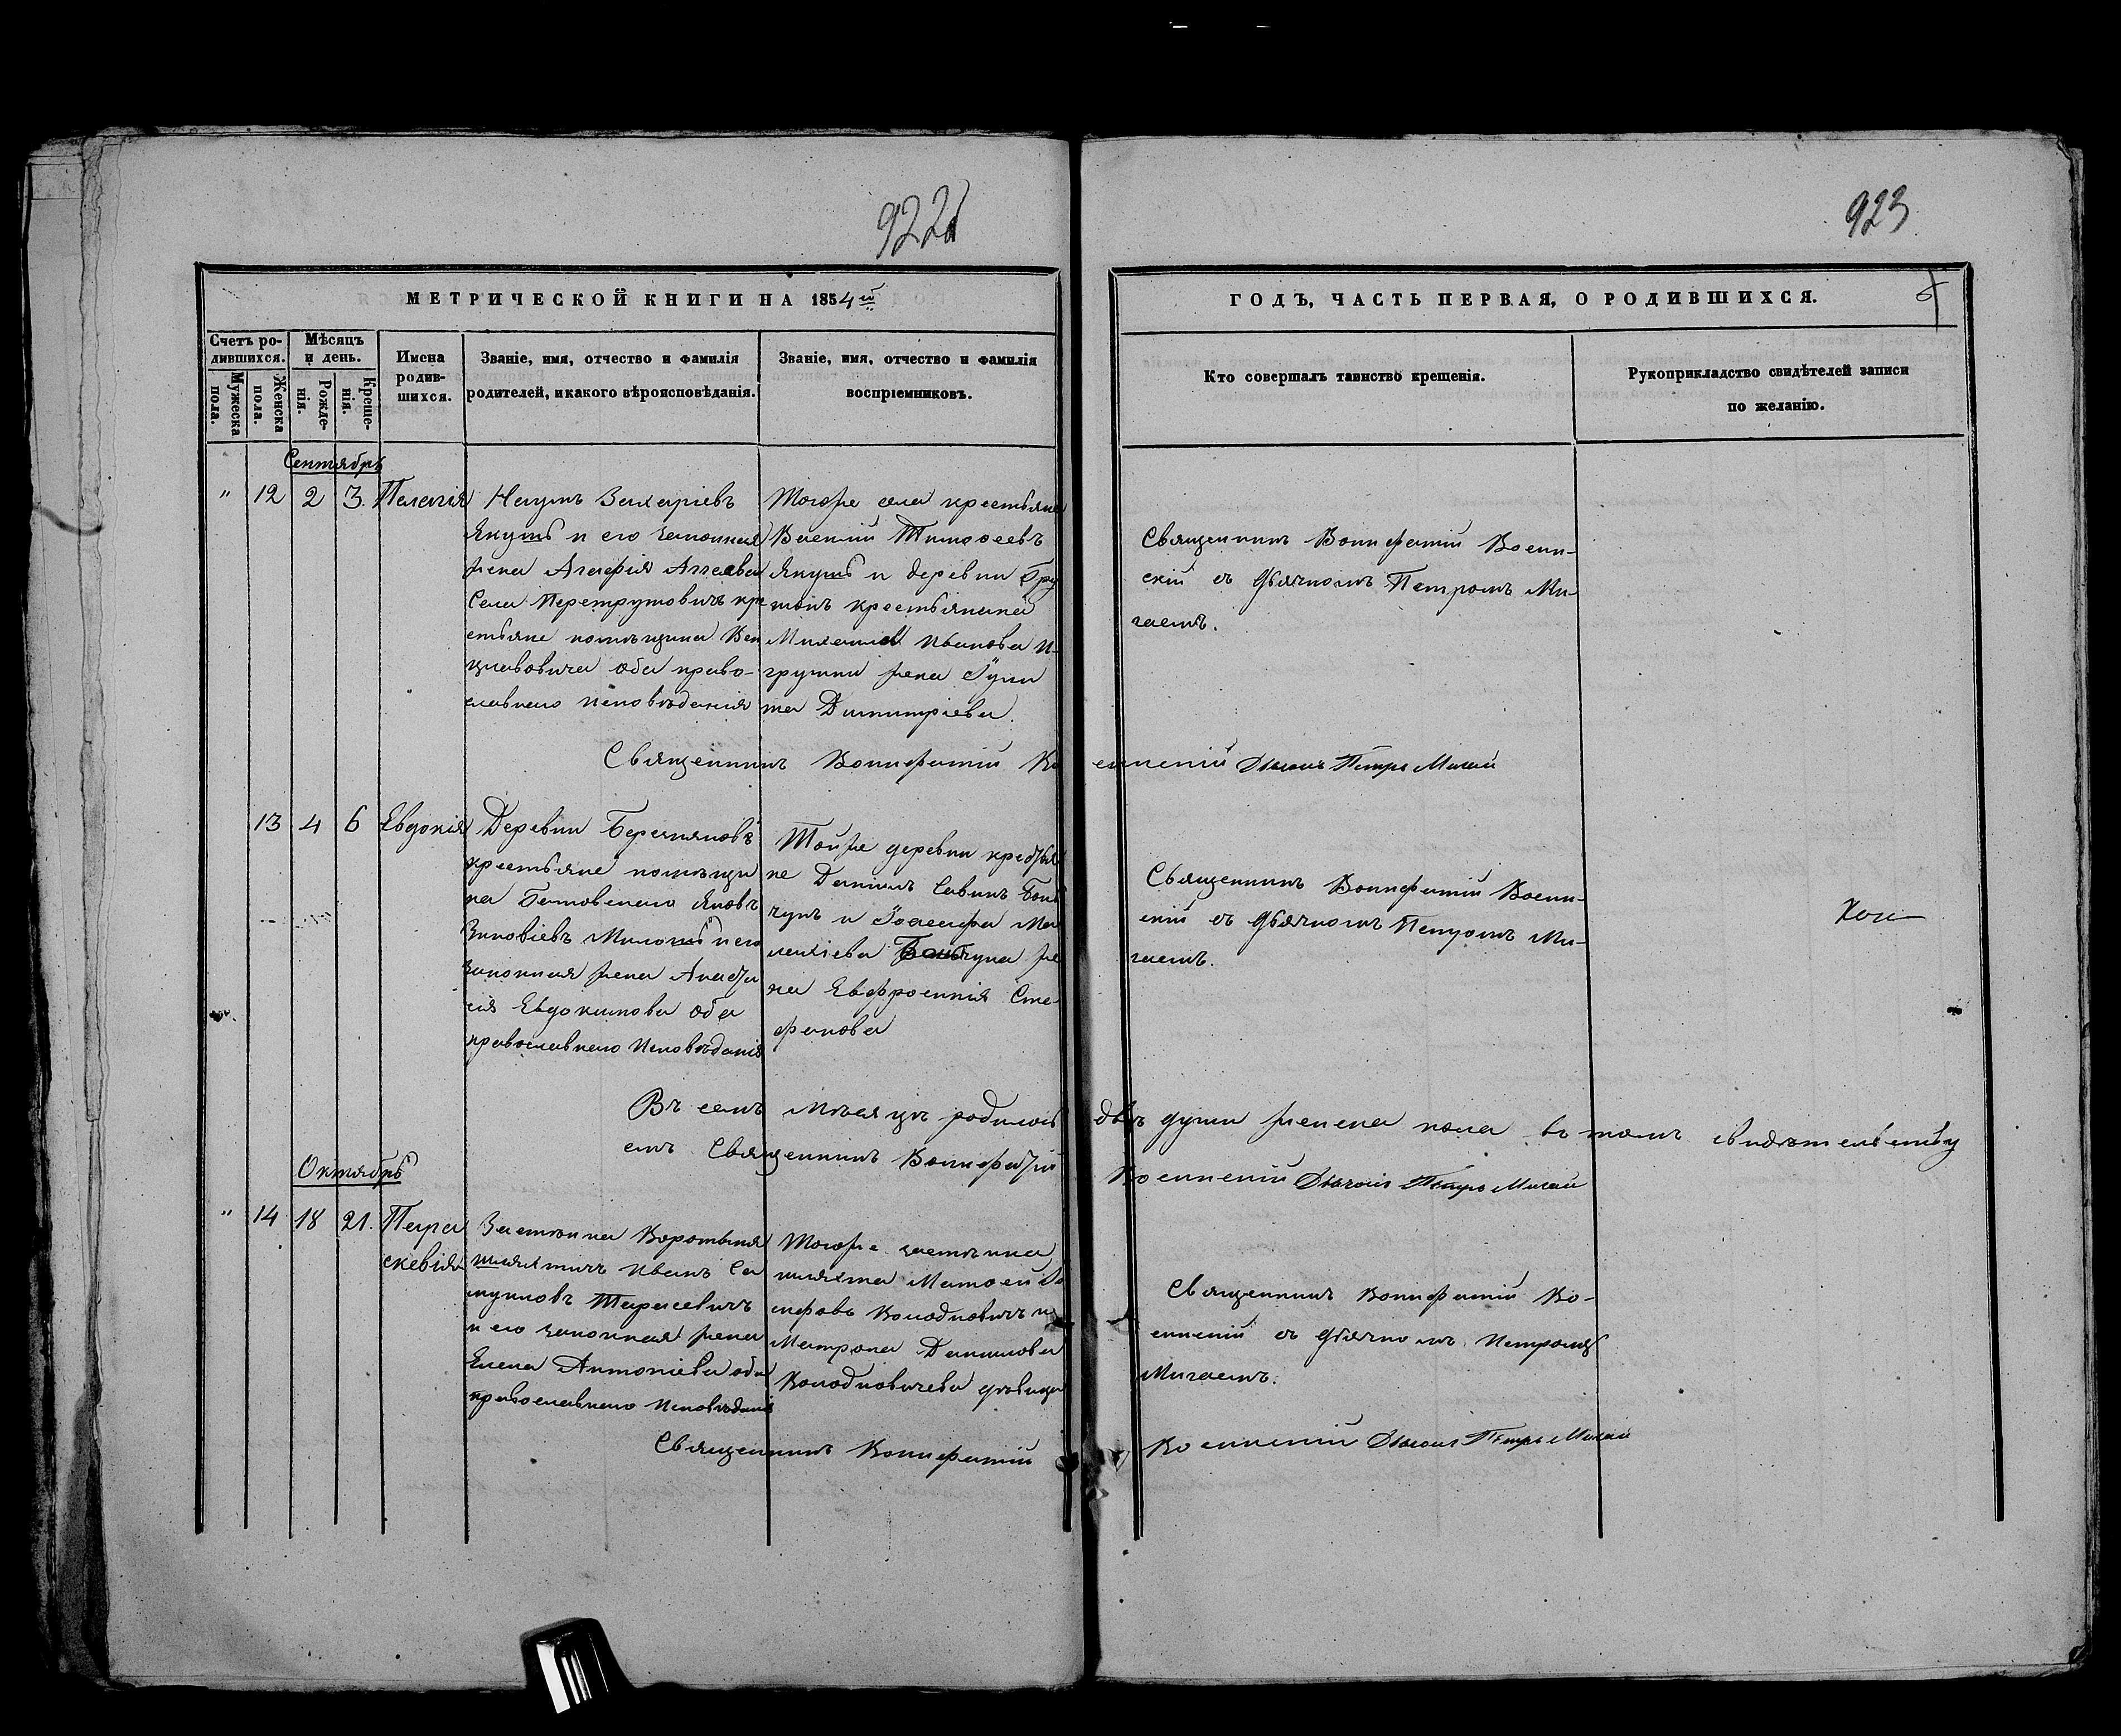 922
923
МЕТРИЧЕСКОЙ КНИГИ НА 1854й
ГОДЪ, ЧАСТЬ ПЕРВАЯ, О РОДИВШИХСЯ.
Счетъ ро-
дившихся.
Мужеска пола.
Женска пола.
Мѣсяцъ
и день.
Рожде-
нія.
Креще-
нія.
Имена
родив-
шихся.
Званіе, имя, отчество и фамилія
родителей, и какого вѣроисповѣданія.
Званіе, имя, отчество и фамилія
воспріемниковъ.
Кто совершалъ таинство крещенія.
Рукоприкладство свидѣтелей записи
по желанію.
Сентябрь
" 12 2 3. Пелагія
Наумъ Захаріевъ
Якутъ и его законная
жена Агафія
Села Перетрутовичъ кре
стьяне помѣщика Вен
цлавовича оба право-
славнаго исповѣданія
Тогоже села крестьяне
Василій Тимофеевъ
Якутъ и деревни
крестьянина
Михаила Иванова
жена Гули
та Димитріева.
Священникъ Вонифатій Воени-
скій съ дьячкомъ Петромъ Ми-
гаемъ.
Священникъ Вонифатій Во
еннскій Дьячокъ Петръ Мигай
13 4 6 Евдокія
Деревни
крестьяне помѣщи
ка Яковъ
Зиновіевъ и его
законная жена Анаста
сія Евдокимова оба
православнаго исповѣданія
Тойже деревни крестья
не Даніилъ Савинъ
и Іосифа Ма
лахіева же
на Евфросинія Сте-
фанова
Священникъ Вонифатій Воени-
скій съ дьячкомъ Петромъ Ми-
гаемъ.
Въ семъ мѣсяцѣ родилось
двѣ души женска пола въ томъ свидѣтельству
емъ Священникъ Вонифатій
Военнскій Дьячокъ Петръ Мигай
Октябрь
" 14 18 21. Пара
скевія
Застѣнка
шляхтичъ Иванъ Са
муиловъ Тарасевичъ
и его законная жена
Елена Антоніева оба
православнаго исповѣданія
Тогоже застѣнка
шляхта Матфей Іо
сифовъ Колодковичъ и
Матрона Данилова
Колодковичева дѣвица
Священникъ Вонифатій Во-
еннскій съ дьячкомъ Петромъ
Мигаемъ.
Священникъ Вонифатій
Военнскій Дьячокъ Петръ Мигай